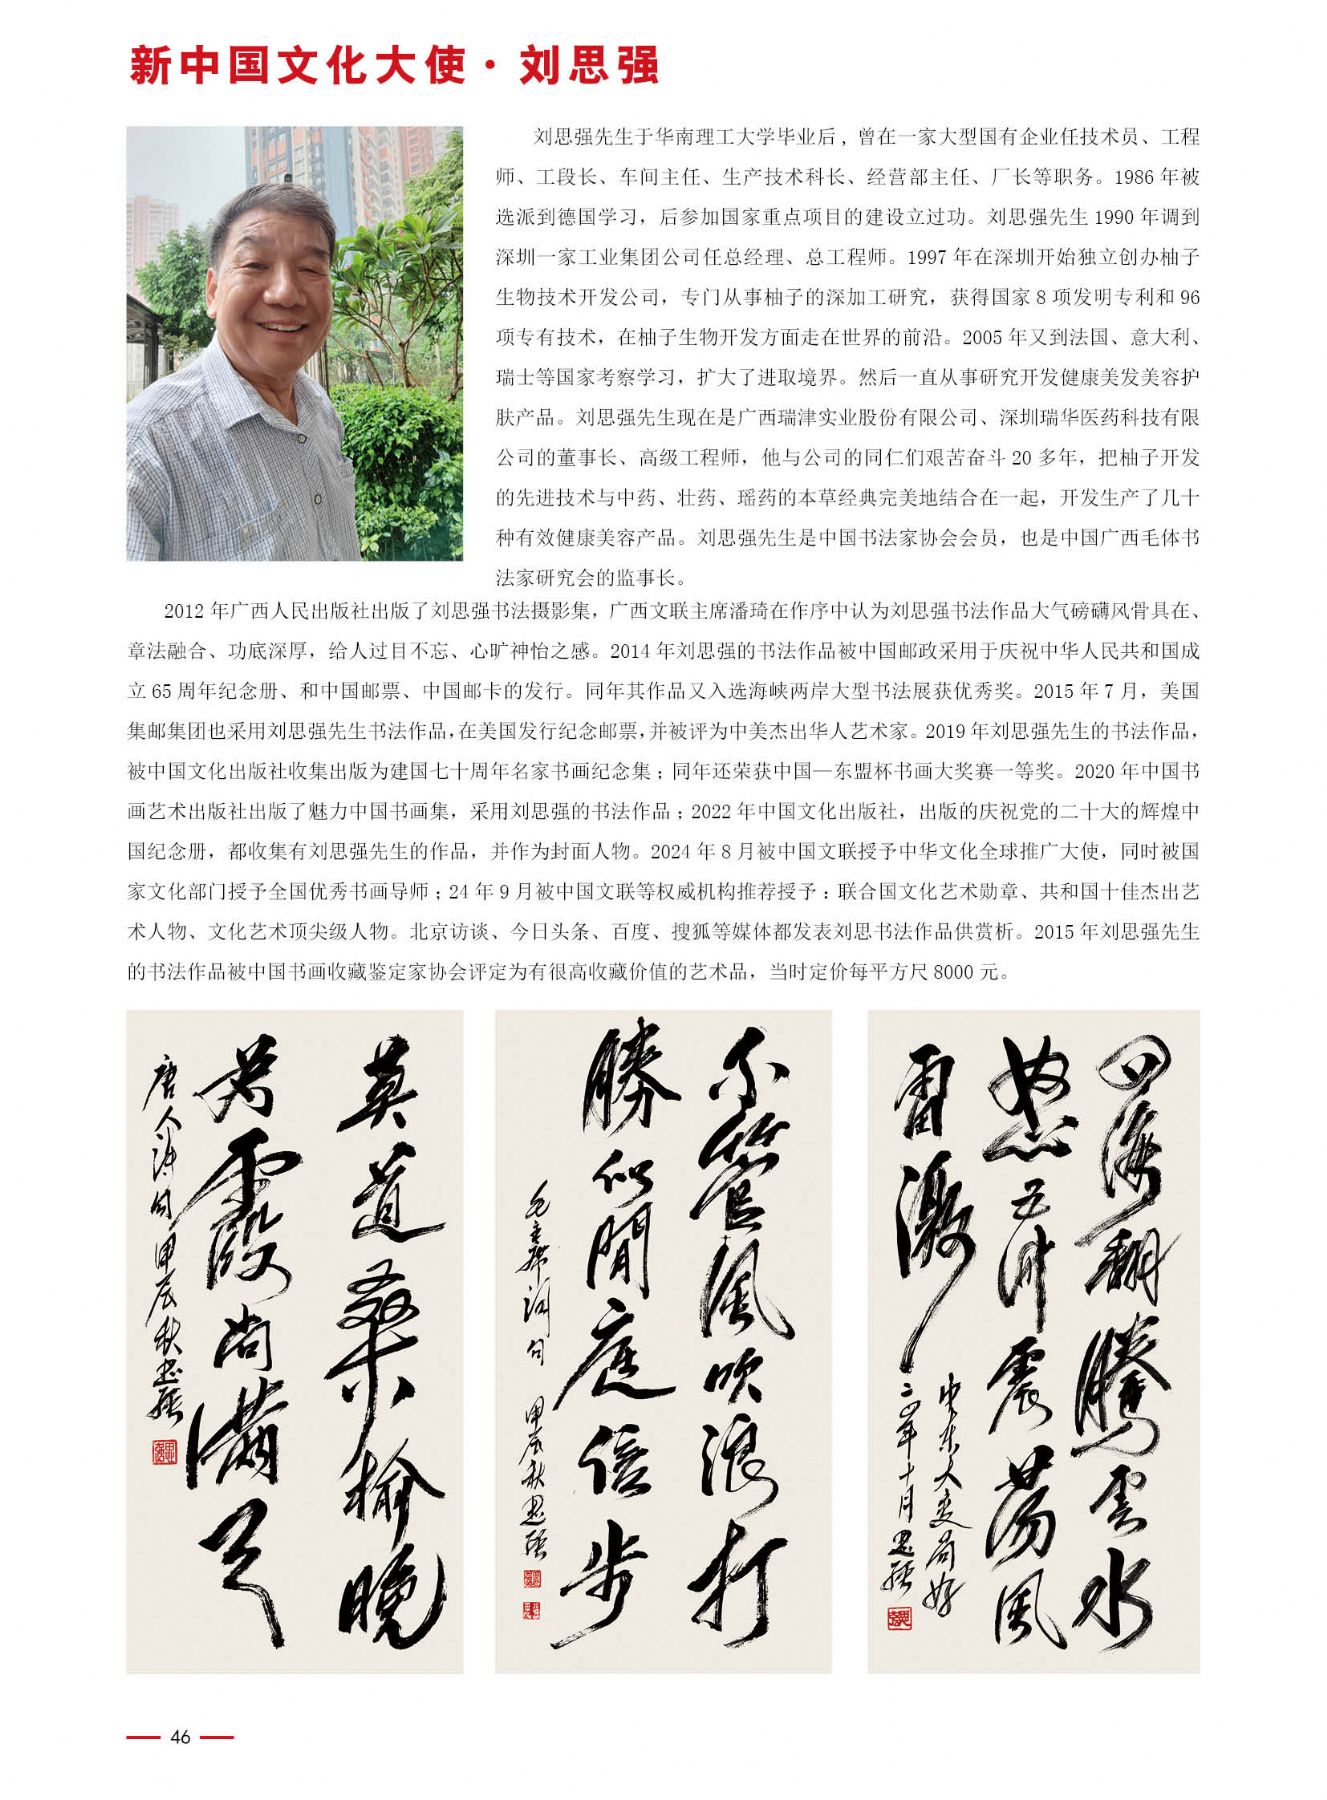 新中国文化大使·刘思强
刘思强先生于华南理工大学毕业后，曾在一家大型国有企业任技术员、工程
师、工段长、车间主任、生产技术科长、经营部主任、厂长等职务。1986 年被
选派到德国学习，后参加国家重点项目的建设立过功。刘思强先生 1990 年调到
深圳一家工业集团公司任总经理、总工程师。1997 年在深圳开始独立创办柚子
生物技术开发公司，专门从事柚子的深加工研究，获得国家 8 项发明专利和 96
项专有技术，在柚子生物开发方面走在世界的前沿。2005 年又到法国、意大利、
瑞士等国家考察学习，扩大了进取境界。然后一直从事研究开发健康美发美容护
肤产品。刘思强先生现在是广西瑞津实业股份有限公司、深圳瑞华医药科技有限
公司的董事长、高级工程师，他与公司的同仁们艰苦奋斗 20 多年，把柚子开发
的先进技术与中药、壮药、瑶药的本草经典完美地结合在一起，开发生产了几十
种有效健康美容产品。刘思强先生是中国书法家协会会员，也是中国广西毛体书
法家研究会的监事长。
2012 年广西人民出版社出版了刘思强书法摄影集，广西文联主席潘琦在作序中认为刘思强书法作品大气磅礴风骨具在、
章法融合、功底深厚，给人过目不忘、心旷神怡之感。2014 年刘思强的书法作品被中国邮政采用于庆祝中华人民共和国成
立 65 周年纪念册、和中国邮票、中国邮卡的发行。同年其作品又入选海峡两岸大型书法展获优秀奖。2015 年 7 月，美国
集邮集团也采用刘思强先生书法作品，在美国发行纪念邮票，并被评为中美杰出华人艺术家。2019 年刘思强先生的书法作品，
被中国文化出版社收集出版为建国七十周年名家书画纪念集；同年还荣获中国—东盟杯书画大奖赛一等奖。2020 年中国书
画艺术出版社出版了魅力中国书画集，采用刘思强的书法作品；2022 年中国文化出版社，出版的庆祝党的二十大的辉煌中
国纪念册，都收集有刘思强先生的作品，并作为封面人物。2024 年 8 月被中国文联授予中华文化全球推广大使，同时被国
家文化部门授予全国优秀书画导师；24 年 9 月被中国文联等权威机构推荐授予：联合国文化艺术勋章、共和国十佳杰出艺
术人物、文化艺术顶尖级人物。北京访谈、今日头条、百度、搜狐等媒体都发表刘思书法作品供赏析。2015 年刘思强先生
的书法作品被中国书画收藏鉴定家协会评定为有很高收藏价值的艺术品，当时定价每平方尺 8000 元。
莫道桑榆晚
为霞尚满天
唐人诗句 甲辰秋思强
不管风吹浪打
勝似閒庭信步
毛主席词句 甲辰秋思强
四海翻騰雲水
怒五洲震荡风
雷激
中东大变局好
二四年十月思强
46